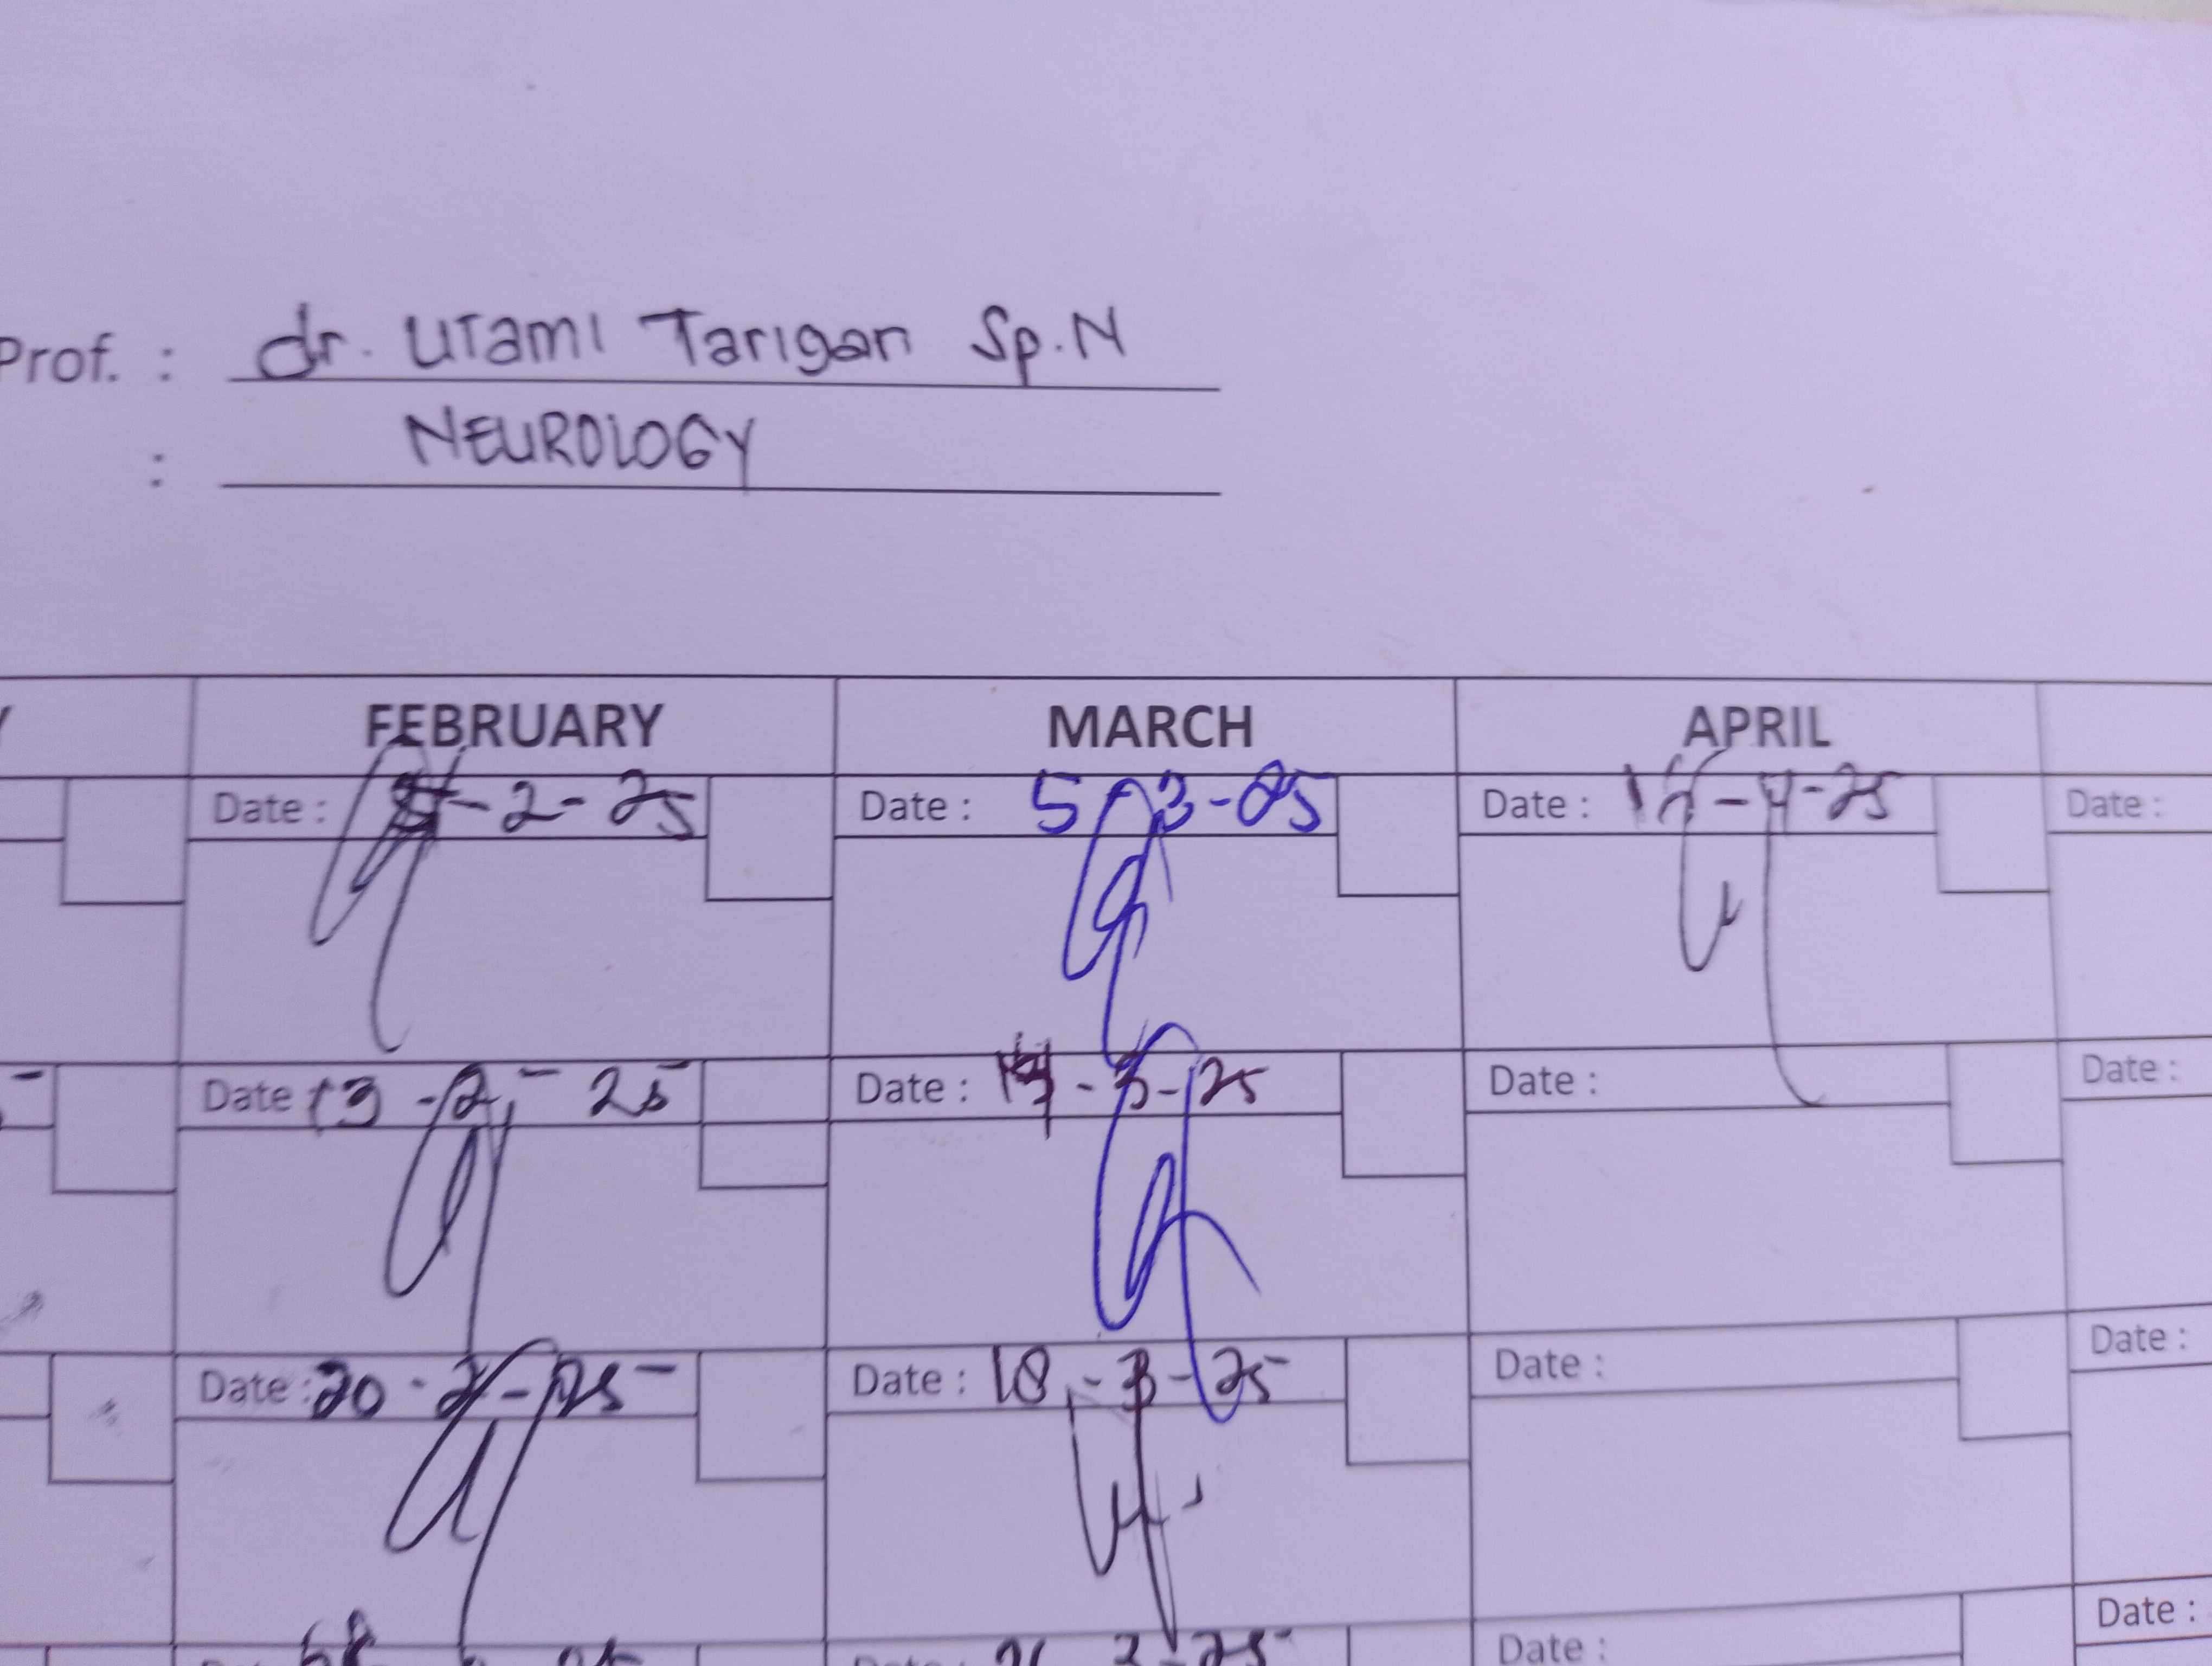 Prof. : dr. Utami Tarigan Sp.N
: NEUROLOGY
FEBRUARY MARCH APRIL
Date : -2-25 Date : 5-3-25 Date : -4-25 Date :
Date 13-2-25 Date : -3-25 Date : Date :
Date : 20-2-25 Date : 18-3-25 Date : Date :
Date : Date :